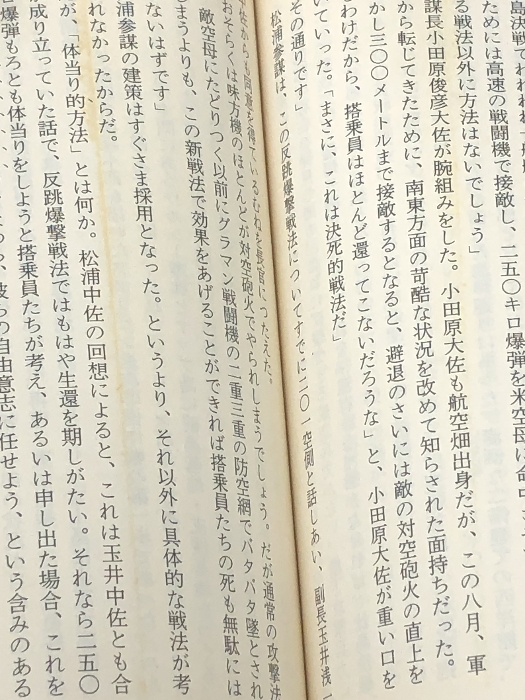 島決戦で
ためには高速の戦闘機で接敵し、二五〇キロ爆弾を米空母に命
る戦法以外に方法はないでしょう」
謀長小田原俊彦大佐が腕組みをした。小田原大佐も航空畑出身だが、この八月、軍
から転じてきたために、南東方面の苛酷な状況を改めて知らされた面持ちだった。
かし三〇〇メートルまで接敵するとなると、避退のさいには敵の対空砲火の直上を
わけだから、搭乗員はほとんど還ってこないだろうな」と、小田原大佐が重い口を
いていった。「まさに、これは決死的戦法だ」
その通りです」
松浦参謀は、この反跳爆撃戦法についてすでに二〇一空側と話しあい、副長玉井浅一
佐からも同意を得ているむねを長官につたえた。
おそらくは味方機のほとんどが対空砲火でやられてしまうでしょう。だが通常の攻撃法
敵空母にたどりつく以前にグラマン戦闘機の二重三重の防空網でバタバタ墜とされ
しまうよりも、この新戦法で効果をあげることができれば搭乗員たちの死も無駄には
ないはずです」
浦参謀の建策はすぐさま採用となった。というより、それ以外に具体的な戦法が考
れなかったからだ。
が、「体当り的方法」とは何か。松浦中佐の回想によると、これは玉井中佐とも合
成り立っていた話で、反跳爆撃戦法ではもはや生還を期しがたい。それなら二五〇
爆弾もろとも体当りをしようと搭乗員たちが考え、あるいは申し出た場合、これを
彼らの自由意志に任せよう、という含みのある